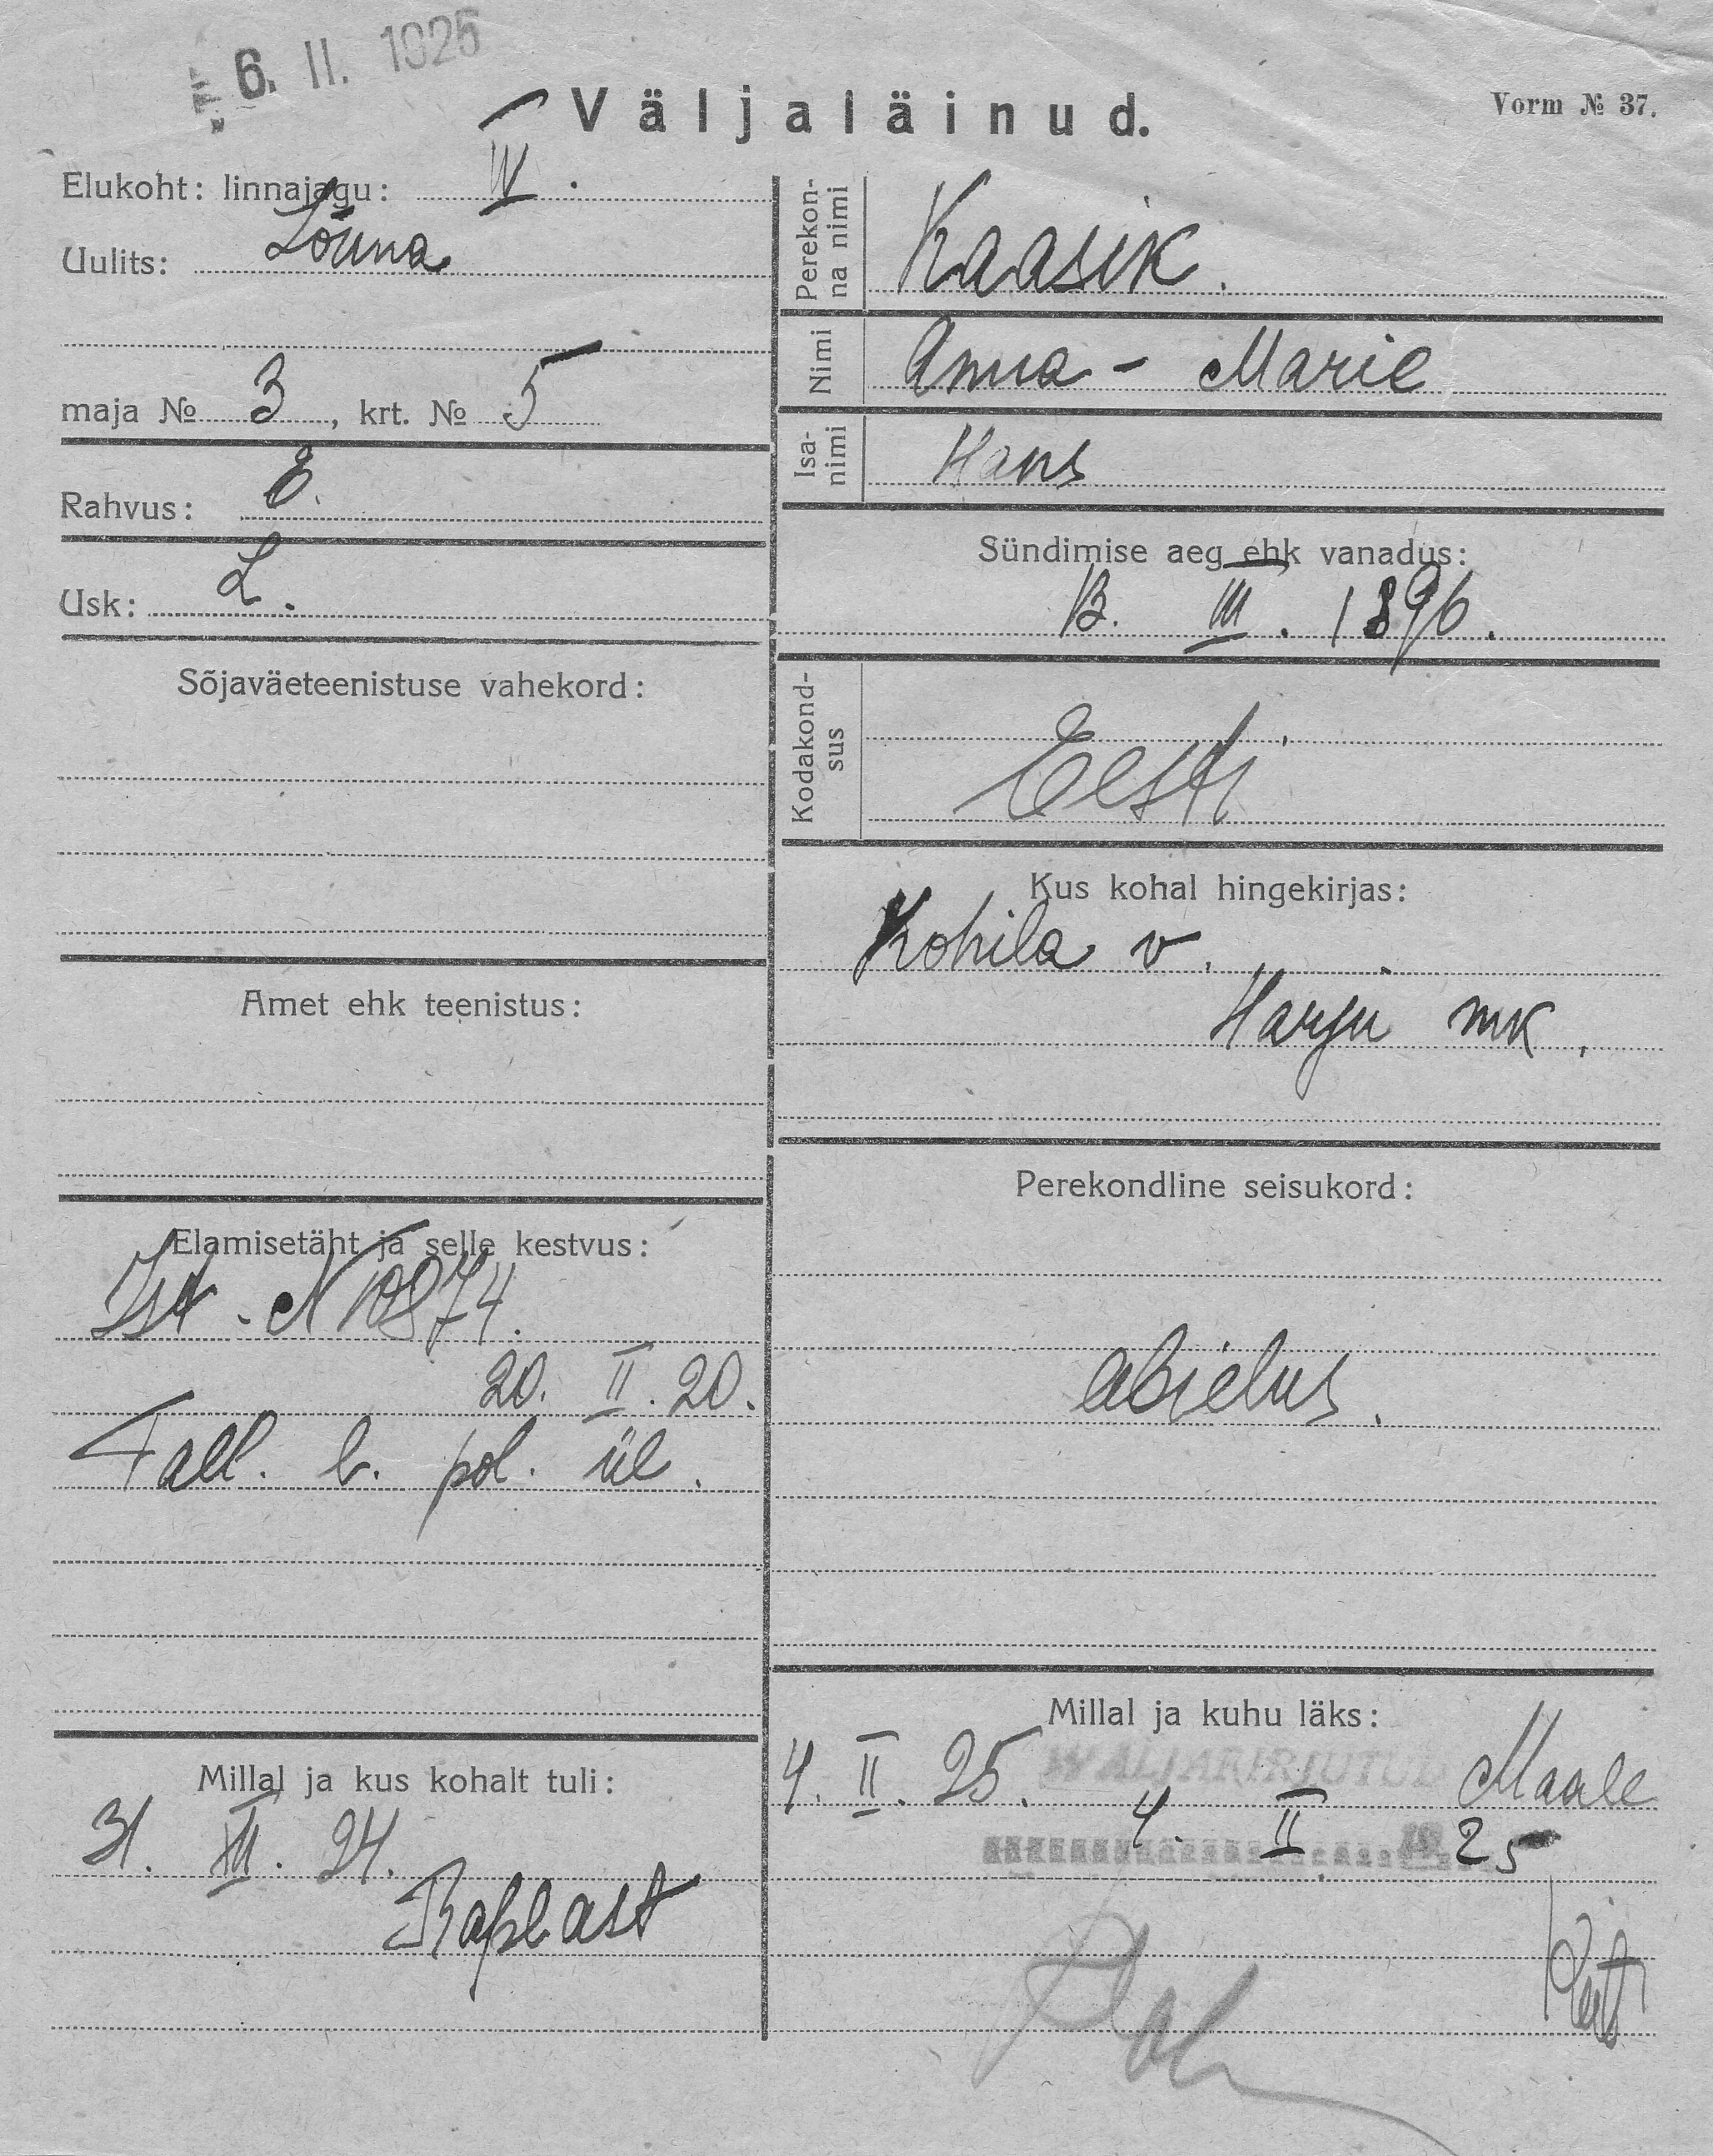 6. II. 1925
Väljaläinud.
Vorm № 37.
Elukoht: linnajagu: IV.
Uulits: Lõuna
maja № 3, krt. № 5
Rahvus: E.
Usk: L.
Sõjaväeteenistuse vahekord:
Amet ehk teenistus:
Elamisetäht ja selle kestvus:
Ist. N 10874.
20. II. 20.
Tall. l. pol. ül.
Millal ja kus kohalt tuli:
31. XII. 24.
Raplast
Perekon-
na nimi
Kaasik.
Nimi
Anna - Marie
Isa-
nimi
Hans
Sündimise aeg ehk vanadus:
13. III. 1896.
Kodakond-
sus
Eesti
Kus kohal hingekirjas:
Kohila v.
Harju mk.
Perekondline seisukord:
abielus.
Millal ja kuhu läks:
4. II. 25. WÄLJAKIRJUTUD Maale
4. II 19 25